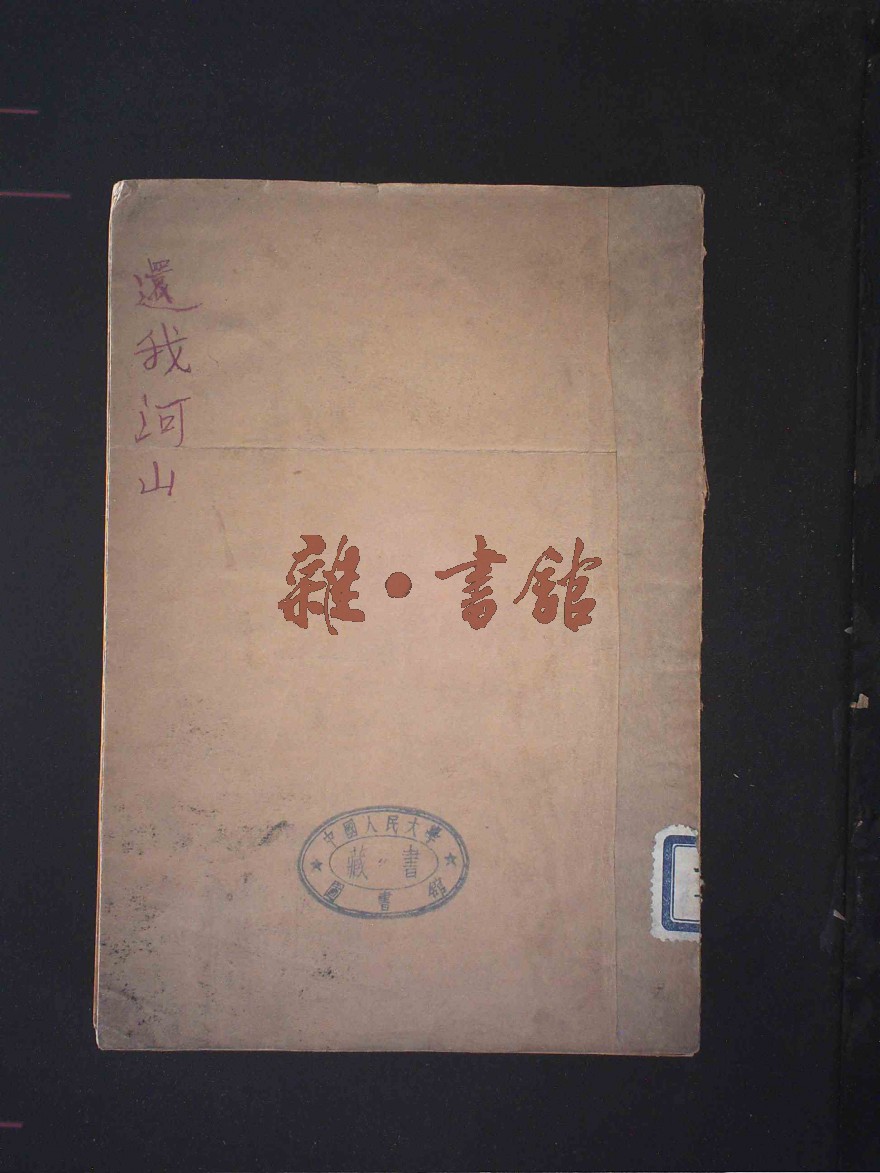 還我河山
雜·書館
中國人民大學
藏書
圖書館